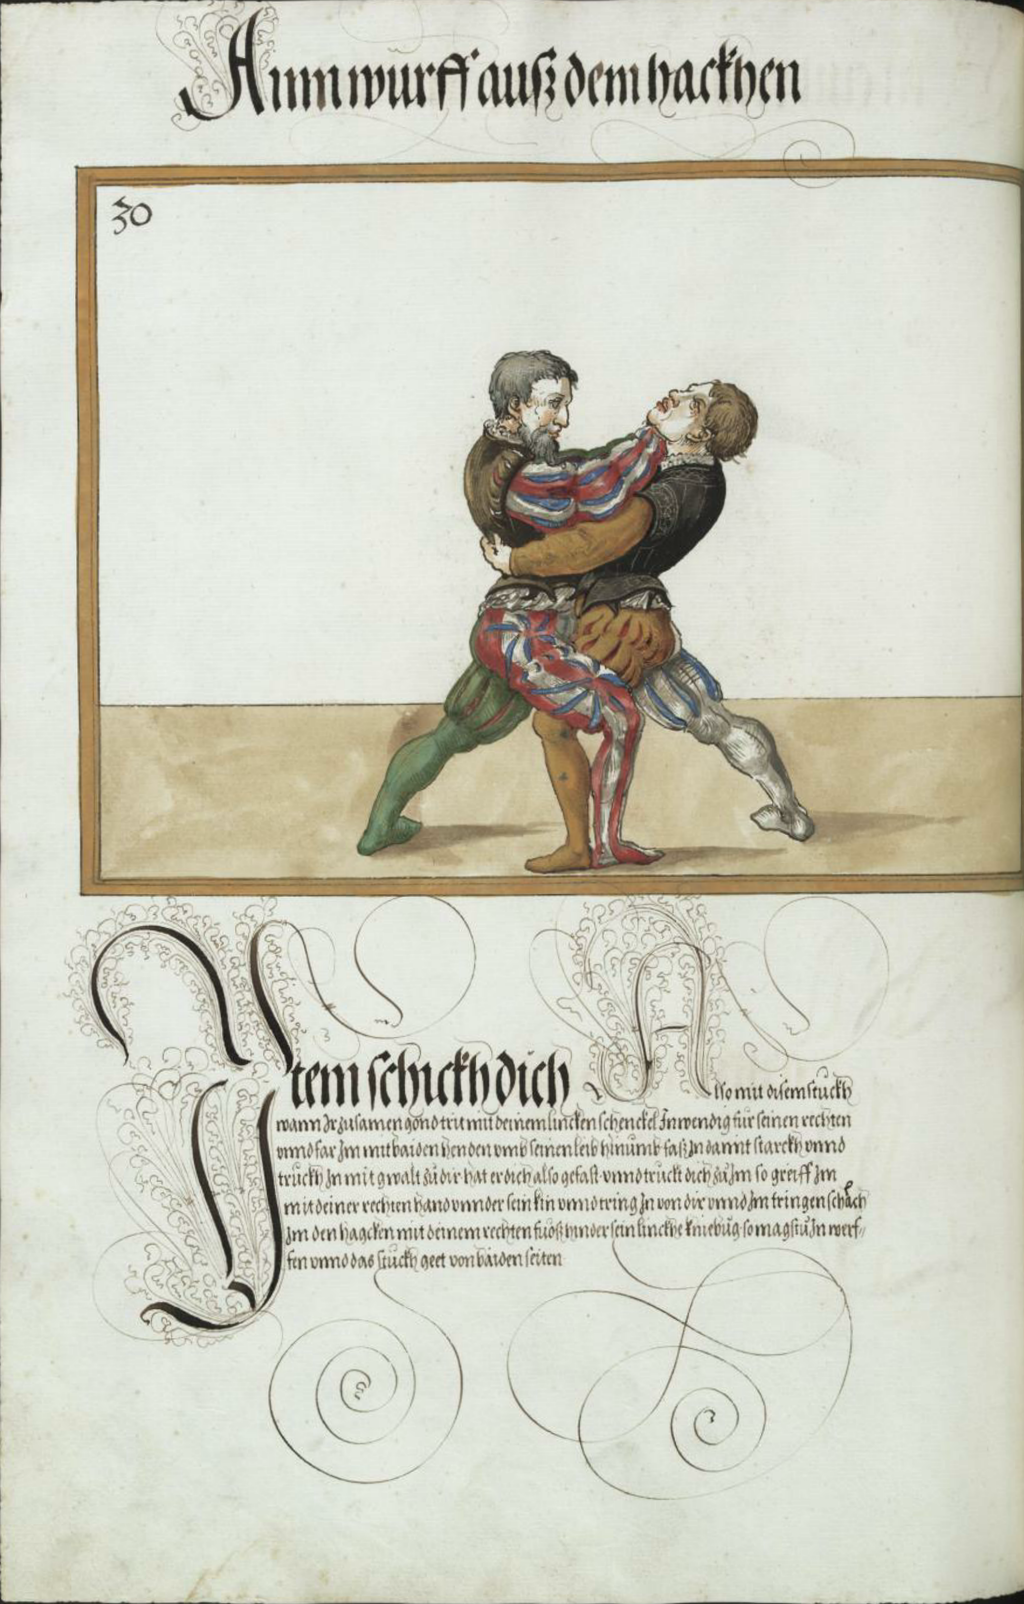 Ainn wurff auß dem hackhen
30
Item schickh dich Also mit disem stuckh
wann Ir zusamen gond trit mit deinem lincken schenckel Inwendig für seinen rechten
unnd far Im mit baiden henden umb seinen leib hinumb faß In damit starckh unnd
truckh In mit gwalt zu dir hat er dich also gefast unnd truckt dich zu Im so greiff Im
mit deiner rechten hand unnder sein kin unnd tring In von dir unnd Im tringen schlach
Im den hagcken mit deinem rechten fuoß hinder sein linckhe kniebug so magstu In werf-
fen unnd das stuckh geet von baiden seiten